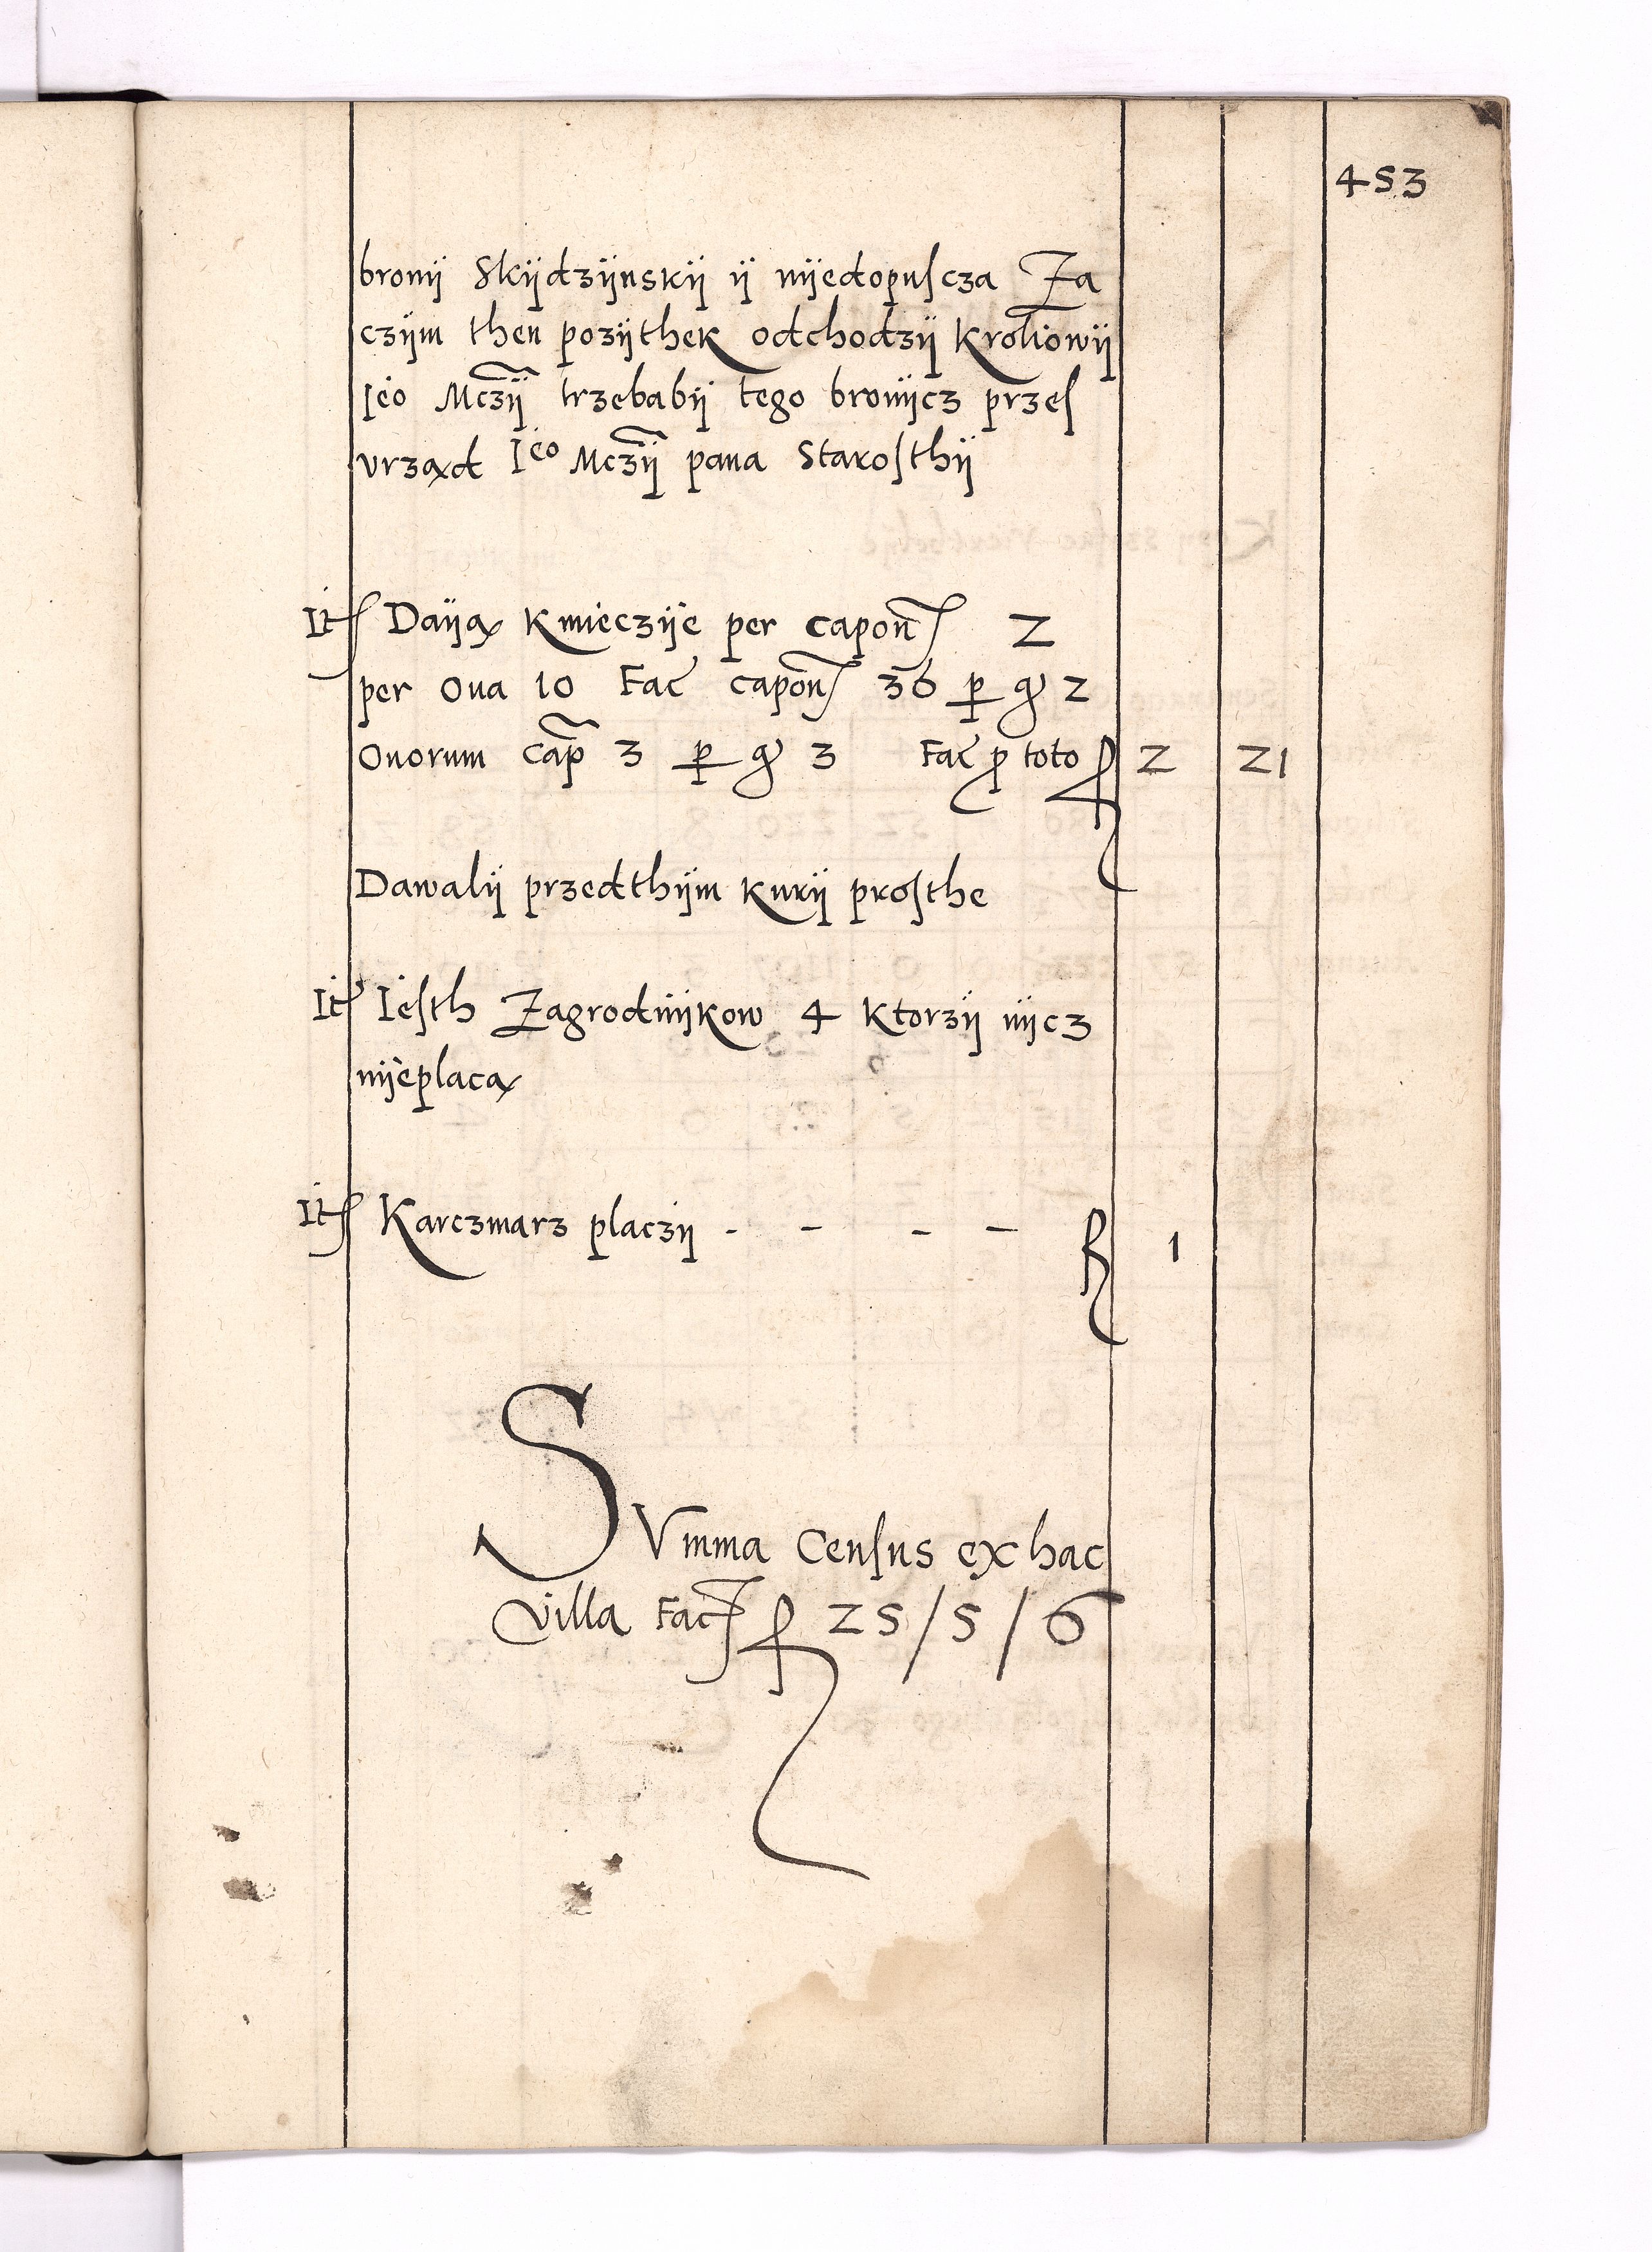 453
bronij Skijdzijnskij ij nijedopuſcza Za
czijm then pozijthek odchodzij Kroliowij
Ieo Mczij trzebabij tego bronijcz przeſ
vrząd Ieo Mczij pana Staroſthij
It Daiją Kmieczije per capon 2
per Oua 10 Fac capon 36 p g 2
Ouorum cap 3 p g 3 Fac p toto f 2 21
Dawalij przedthijm Kurij proſthe
It Ieſth Zagrodnijkow 4 Ktorzij nijcz
nijeplacą
It Karczmarz placzij - - - - f 1
SVmma Cenſus ex hac
Villa Fac f 25/5/6